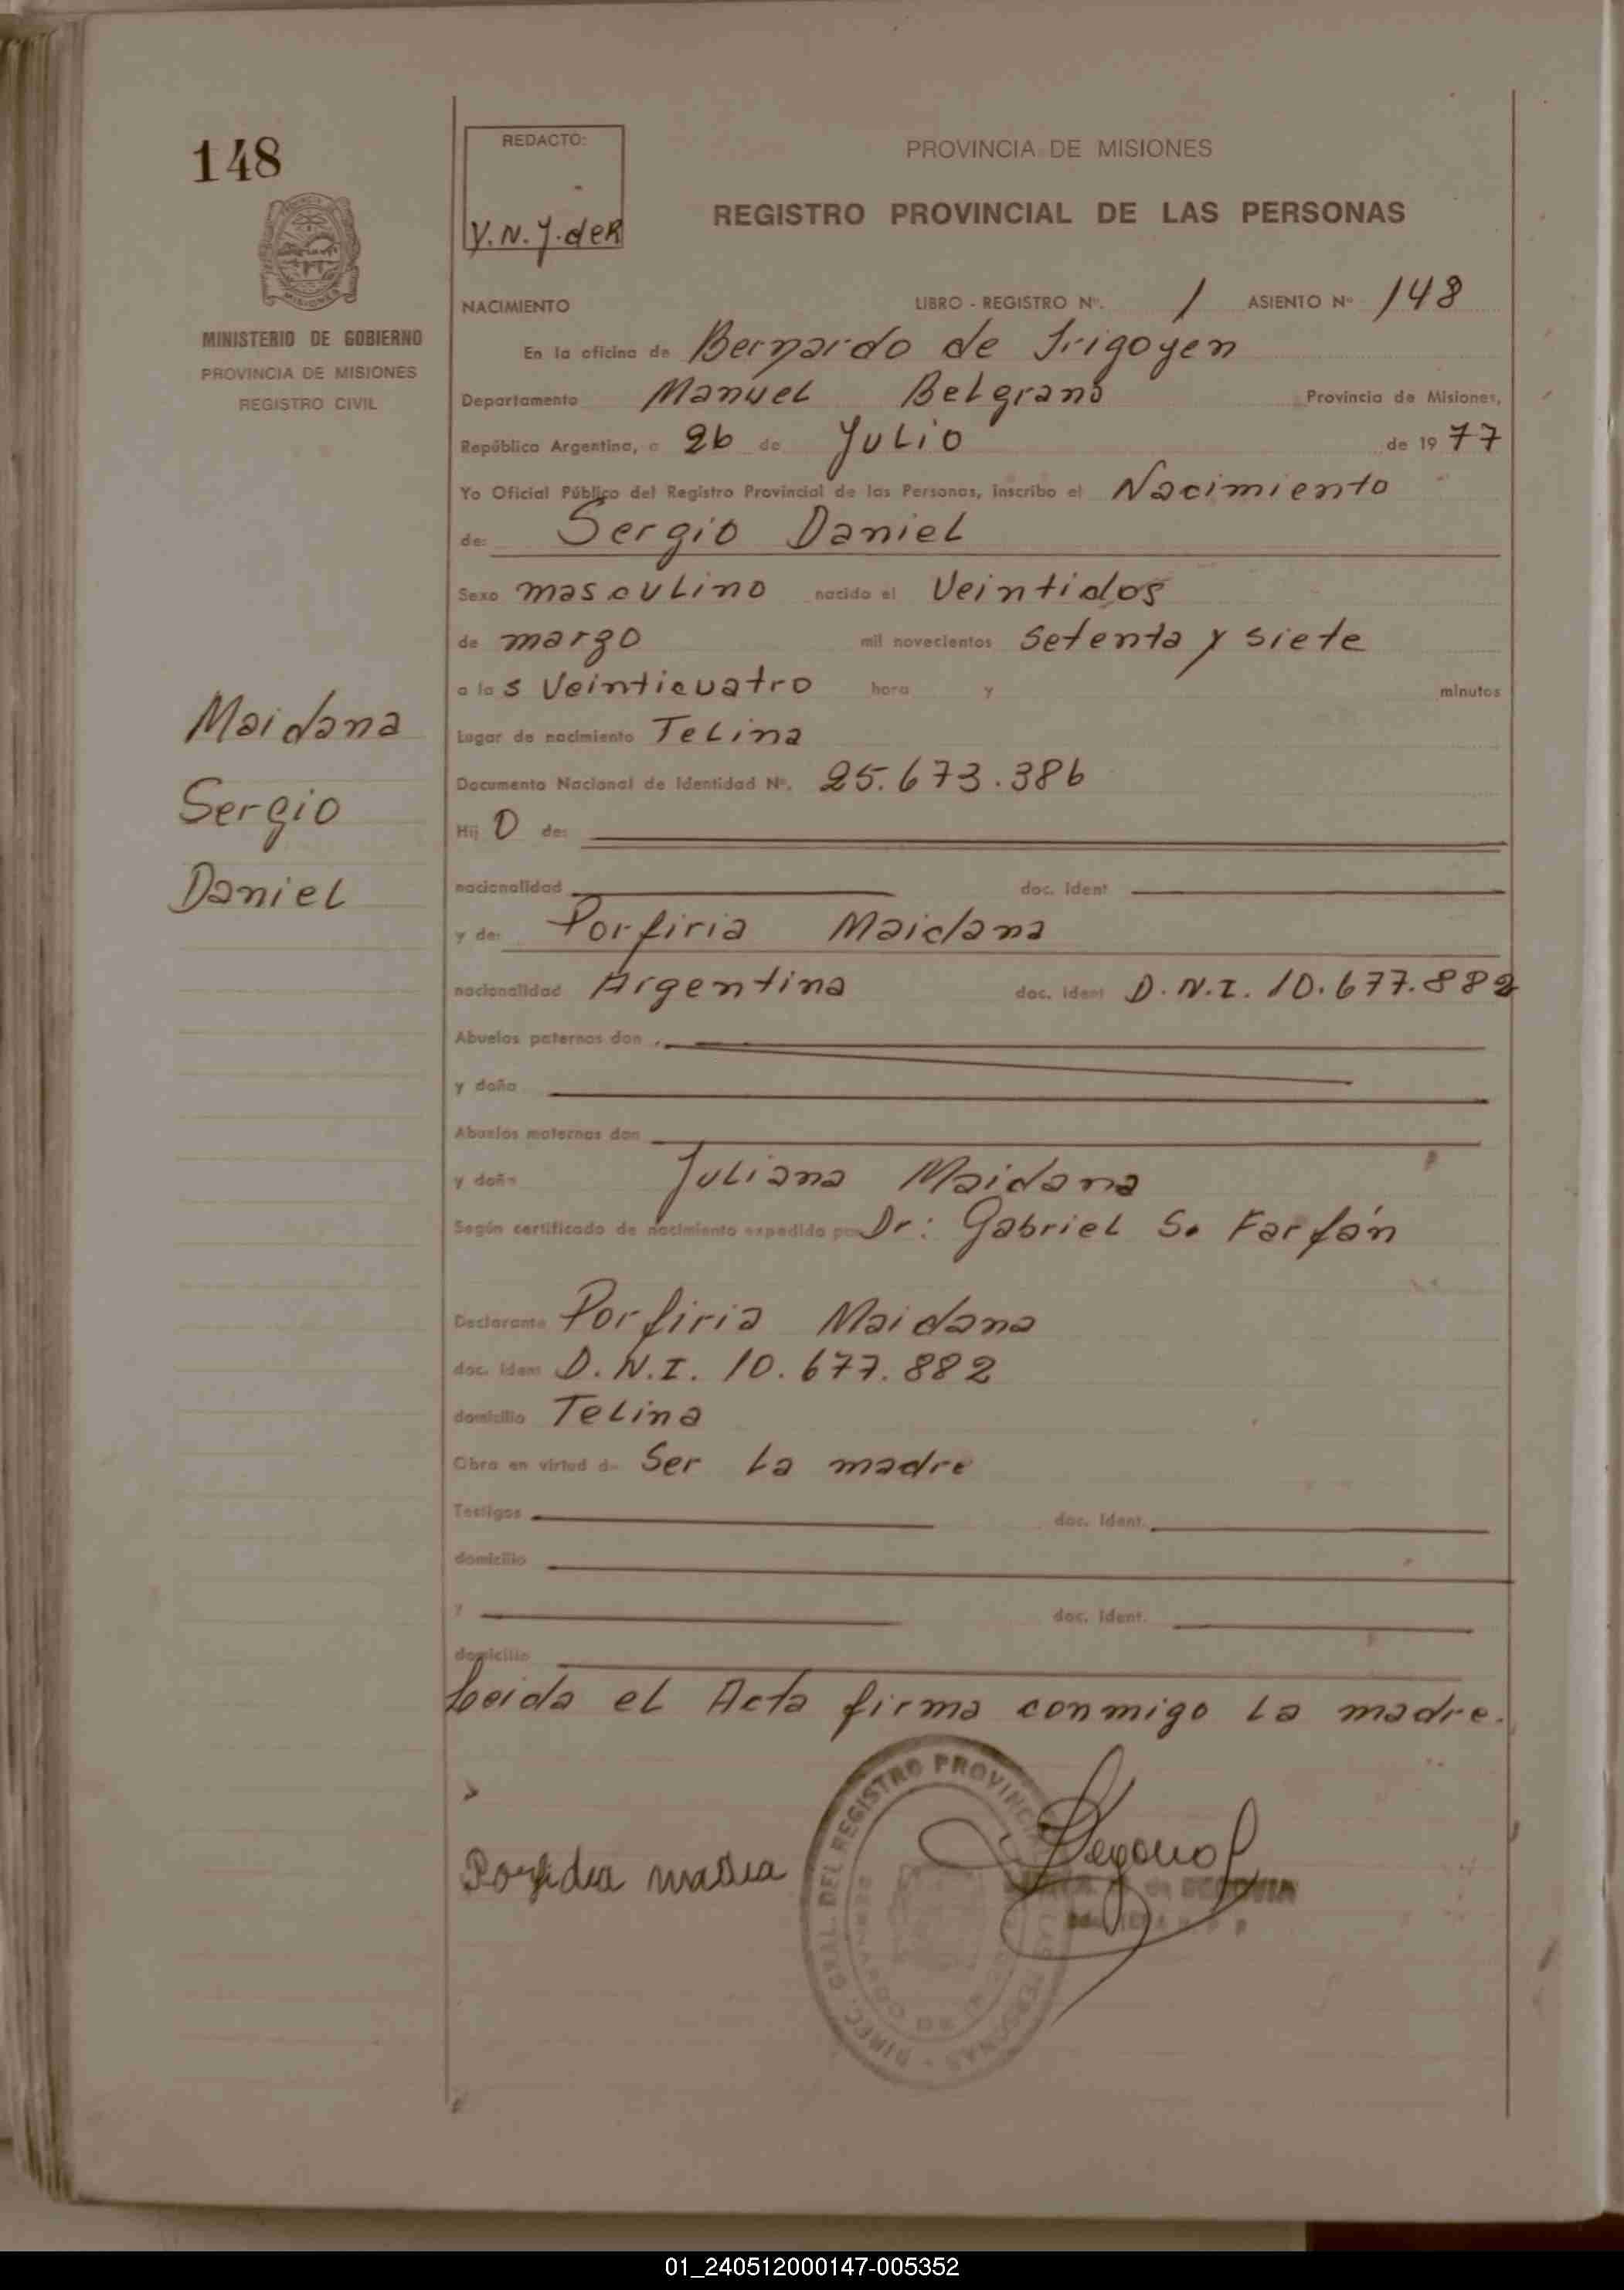 148
REDACTO:
Y.N.Y.deR
PROVINCIA DE MISIONES
REGISTRO PROVINCIAL DE LAS PERSONAS
MISIONES
MINISTERIO DE GOBIERNO
PROVINCIA DE MISIONES
REGISTRO CIVIL
NACIMIENTO LIBRO - REGISTRO Nº. 1 ASIENTO Nº 148
En la oficina de Bernardo de Irigoyen
Departamento Manuel Belgrano Provincia de Misiones,
República Argentina, a 26 de Julio de 1977
Yo Oficial Público del Registro Provincial de las Personas, inscribo el Nacimiento
de: Sergio Daniel
Sexo masculino nacido el Veintidos
de marzo mil novecientos setenta y siete
a las Veinticuatro hora y minutos
Maidana
Sergio
Daniel
Lugar de nacimiento Telina
Documento Nacional de Identidad Nº. 25.673.386
Hij O de:
nacionalidad doc. Ident
y de: Porfiria Maidana
nacionalidad Argentina doc. Ident D.N.I. 10.677.882
Abuelos paternos don
y doña
Abuelos maternos don
y doña Juliana Maidana
Según certificado de nacimiento expedido por Dr: Gabriel S. Farfán
Declarante Porfiria Maidana
doc. Ident D.N.I. 10.677.882
domicilio Telina
Obra en virtud de Ser la madre
Testigos doc. Ident.
domicilio
y doc. Ident.
domicilio
Leida el Acta firma conmigo la madre.
DIREC. GRAL. DEL REGISTRO PROVINCIAL DE LAS PERSONAS
de SEGOVIA
01_240512000147-005352